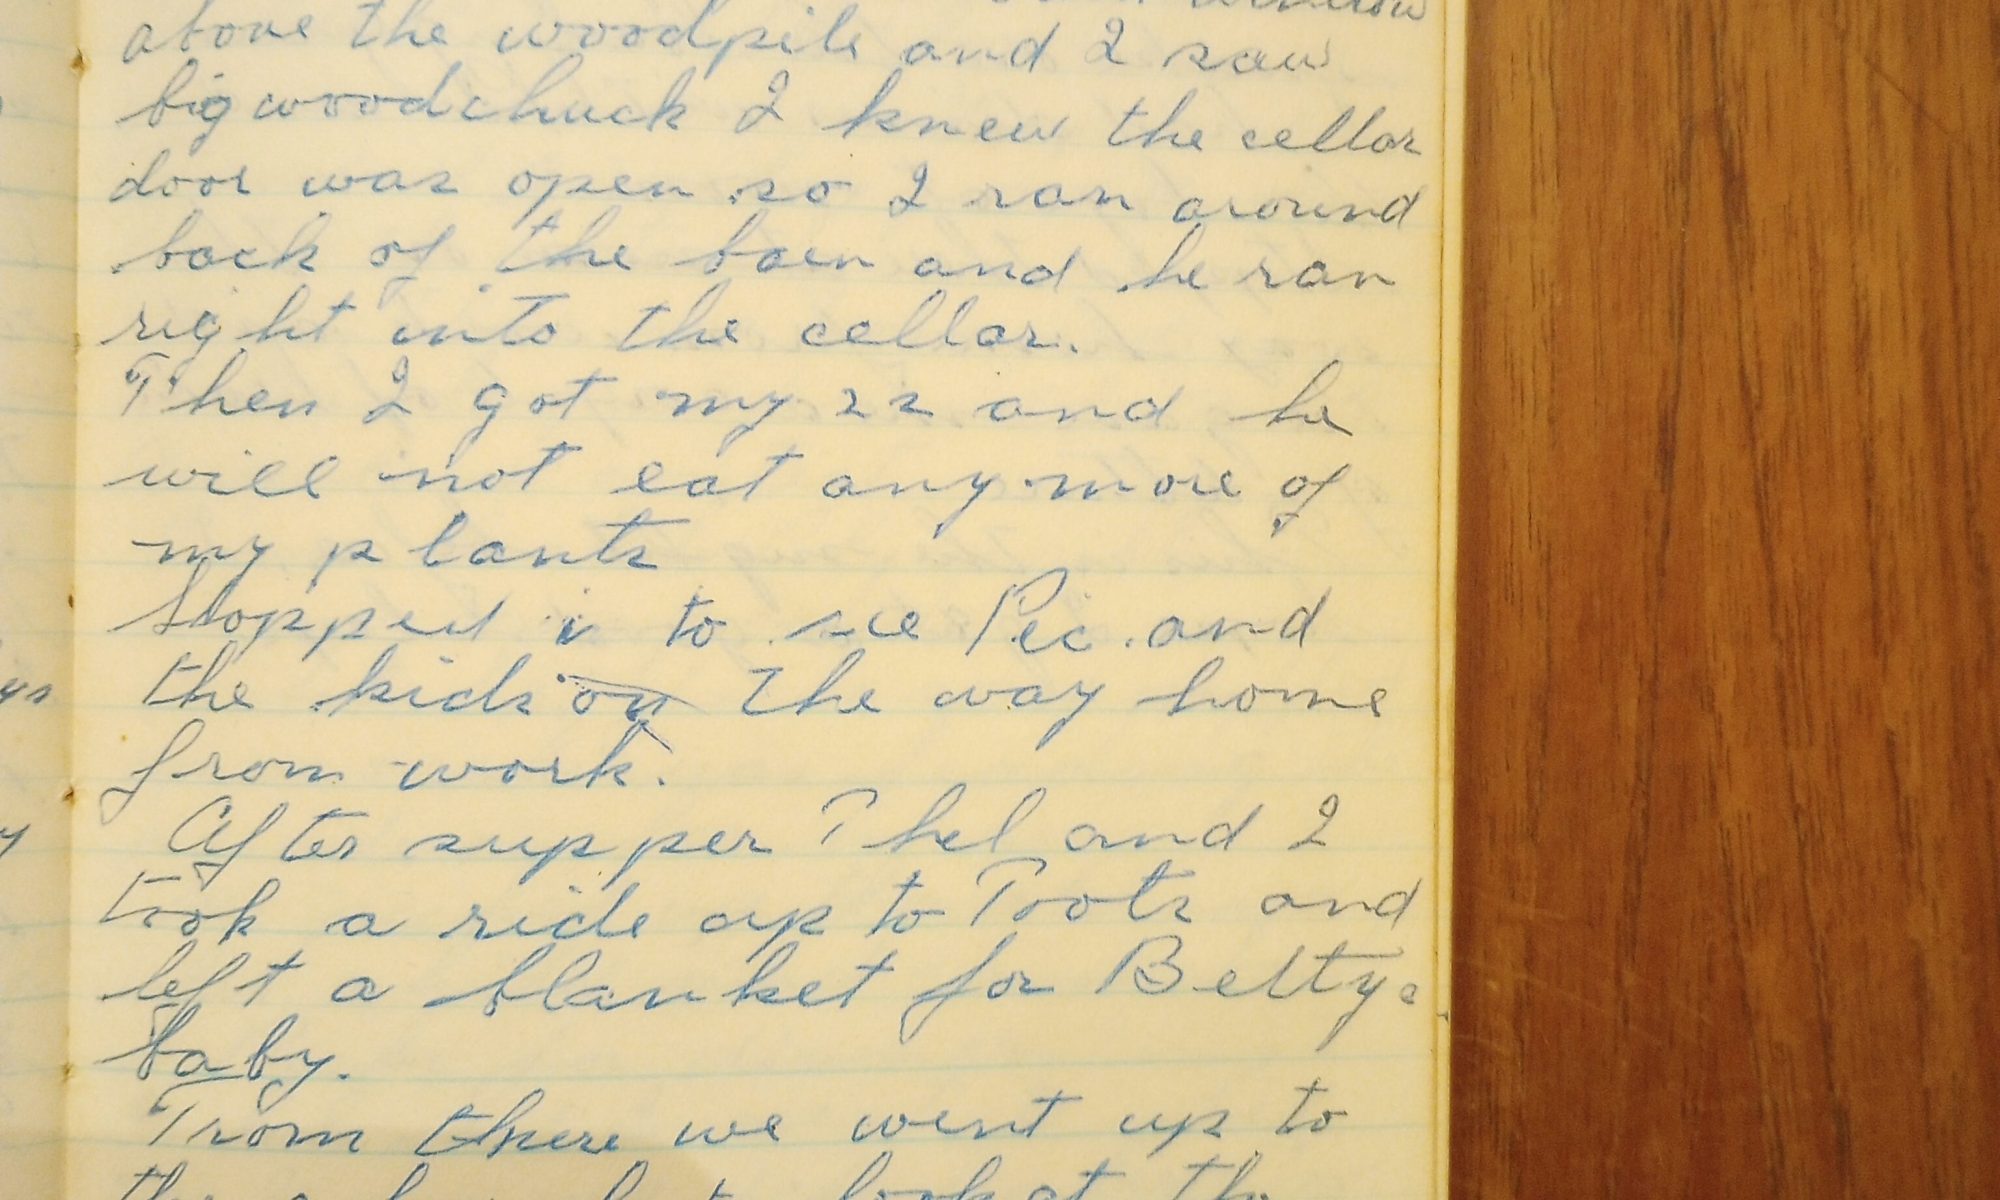 window
above the woodpile and I saw
big woodchuck I knew the cellar
door was open so I ran around
back of the barn and he ran
right into the cellar.
Then I got my 22 and he
will not eat any more of
my plants
Stopped i to see Pec and
the kids on the way home
from work.
After supper Thel and I
took a ride up to Toots and
left a blanket for Bettys
baby.
From there we went up to
look at the